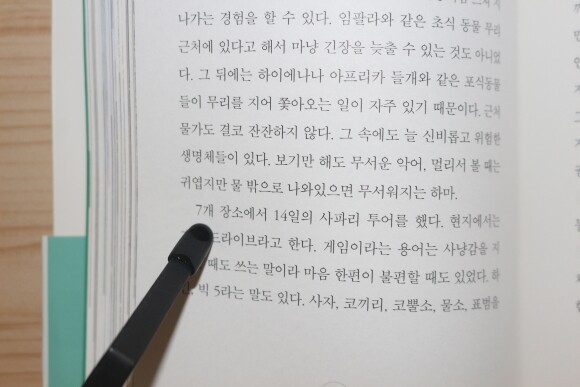 나가는 경험을 할 수 있다. 임팔라와 같은 초식 동물 무리
근처에 있다고 해서 마냥 긴장을 늦출 수 있는 것도 아니었
다. 그 뒤에는 하이에나나 아프리카 들개와 같은 포식동물
들이 무리를 지어 쫓아오는 일이 자주 있기 때문이다. 근처
물가도 결코 잔잔하지 않다. 그 속에도 늘 신비롭고 위험한
생명체들이 있다. 보기만 해도 무서운 악어, 멀리서 볼 때는
귀엽지만 물 밖으로 나와있으면 무서워지는 하마.
7개 장소에서 14일의 사파리 투어를 했다. 현지에서는
드라이브라고 한다. 게임이라는 용어는 사냥감을 지
때도 쓰는 말이라 마음 한편이 불편할 때도 있었다. 하
빅 5라는 말도 있다. 사자, 코끼리, 코뿔소, 물소, 표범을